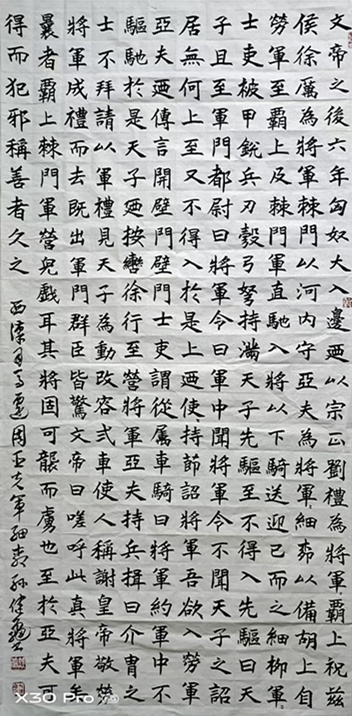 文帝之後六年匈奴大入邊迺以宗正劉禮為將軍霸上祝茲
侯徐厲為將軍棘門以河內守亞夫為將軍細柳以備胡上自
勞軍至霸上及棘門軍直馳入將以下騎送迎已而之細柳軍
士吏被甲銳兵刃彀弓弩持滿天子先驅至不得入先驅曰天
子且至軍門都尉曰將軍令曰軍中聞將軍令不聞天子之詔
居無何上至又不得入於是上迺使持節詔將軍吾欲入勞軍
亞夫迺傳言開壁門壁門士吏謂從属車騎曰將軍約軍中不
驅馳於是天子迺按轡徐行至營將軍亞夫持兵揖曰介冑之
士不拜請以軍禮見天子為動改容式車使人稱謝皇帝敬勞
將軍成禮而去既出軍門群臣皆驚文帝曰嗟呼此真將軍矣
曩者霸上棘門軍營兒戲耳其將固可襲而虜也至於亞夫可
得而犯邪稱善者久之 西漢司馬遷周亞夫軍細柳 孫
X30 Pro